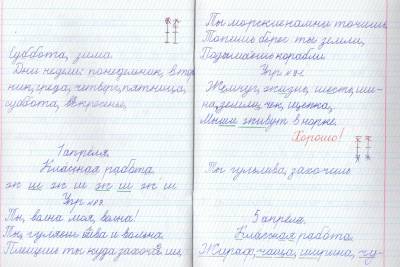 Суббота, зима.
Дни недели: понедельник, втор
ник, среда, четверг, пятница,
суббота,
1 апреля.
Классная работа.
Упр №
Ты, волна моя, волна!
Ты, и вольна.
Плещешь ты куда захочешь,
Ты морские камни точишь
Топишь берег ты земли,
Подымаешь корабли.
Упр №
Жемчуг, жизнь, шесть, ши-
на, чек, щепка,
Мыши живут в норке.
Хорошо!
Ты гульлива, захочешь.
5 апреля.
Классная работа.
Жираф, чаща, ширина, чу-